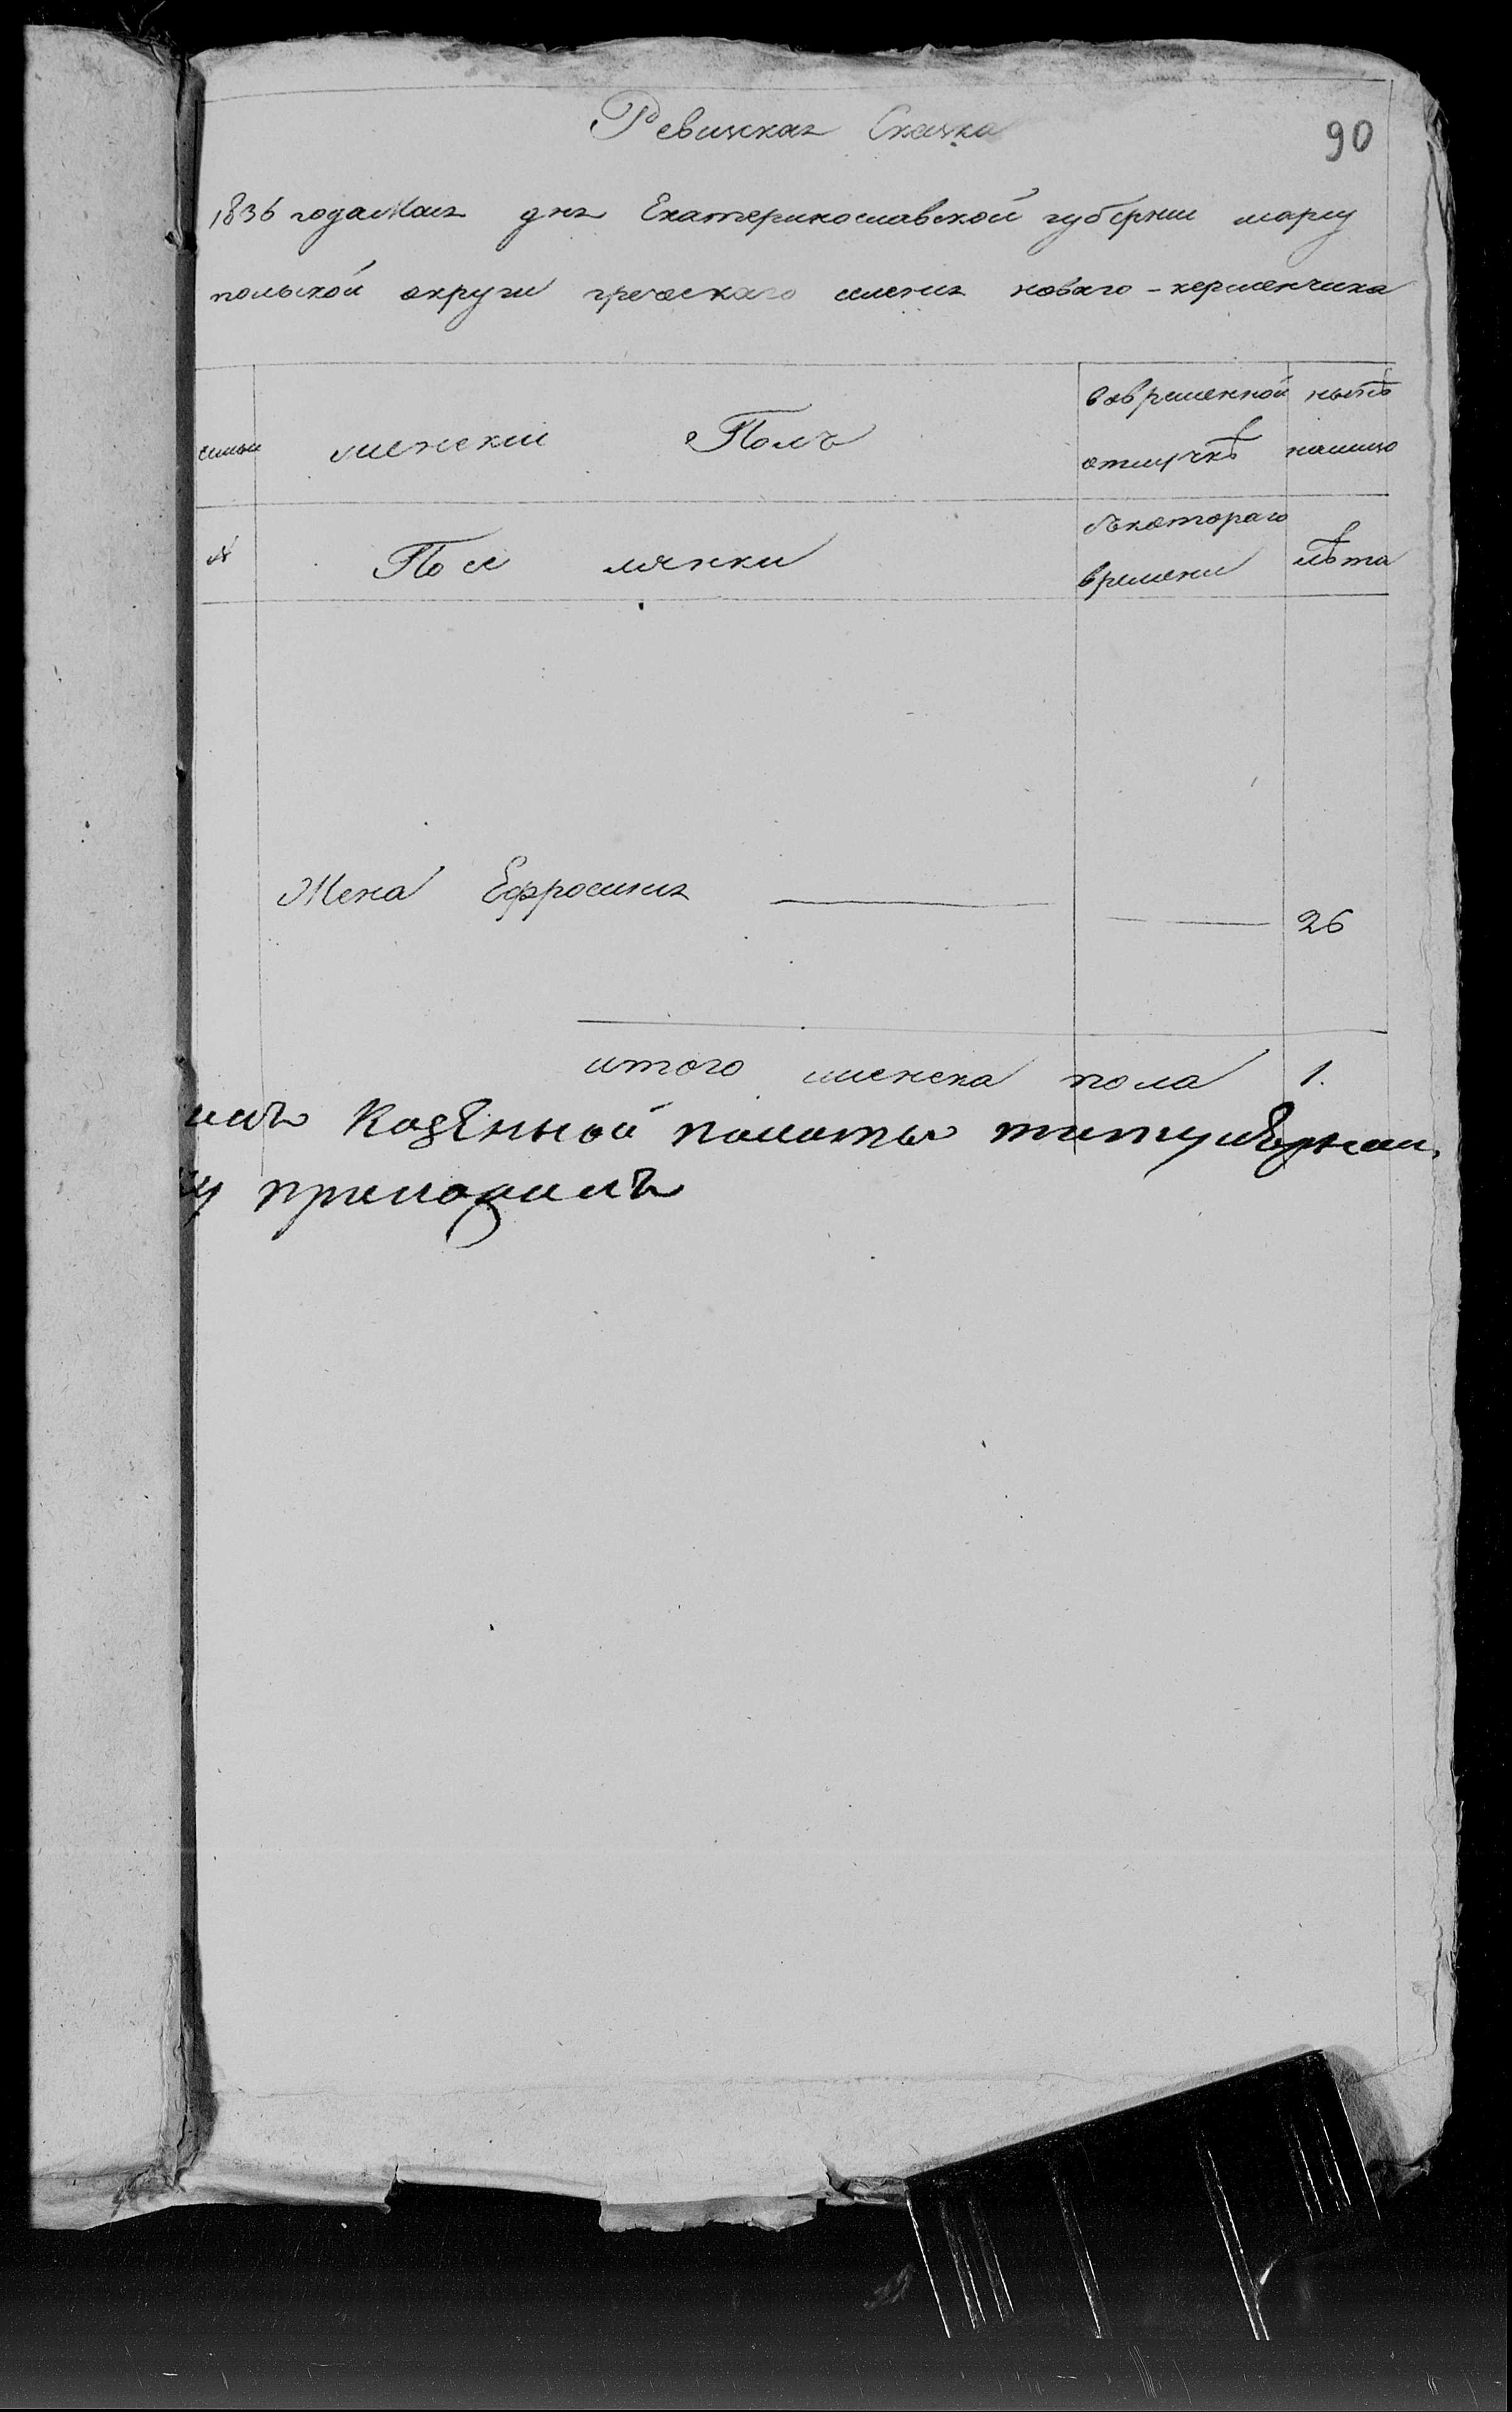 Ревизская Сказка
90
1836 года Мая дня Екатеринославской губернии мариу
польской округи греческаго селения новаго-керменчика
семьи
женский Полъ
вовременной отлучкѣ
нынѣ налицо
№
Посе лянки
съкотораго времени
лѣта
Жена Ефросиния 26
итого женска пола 1.
Казенной палаты
приложилъ